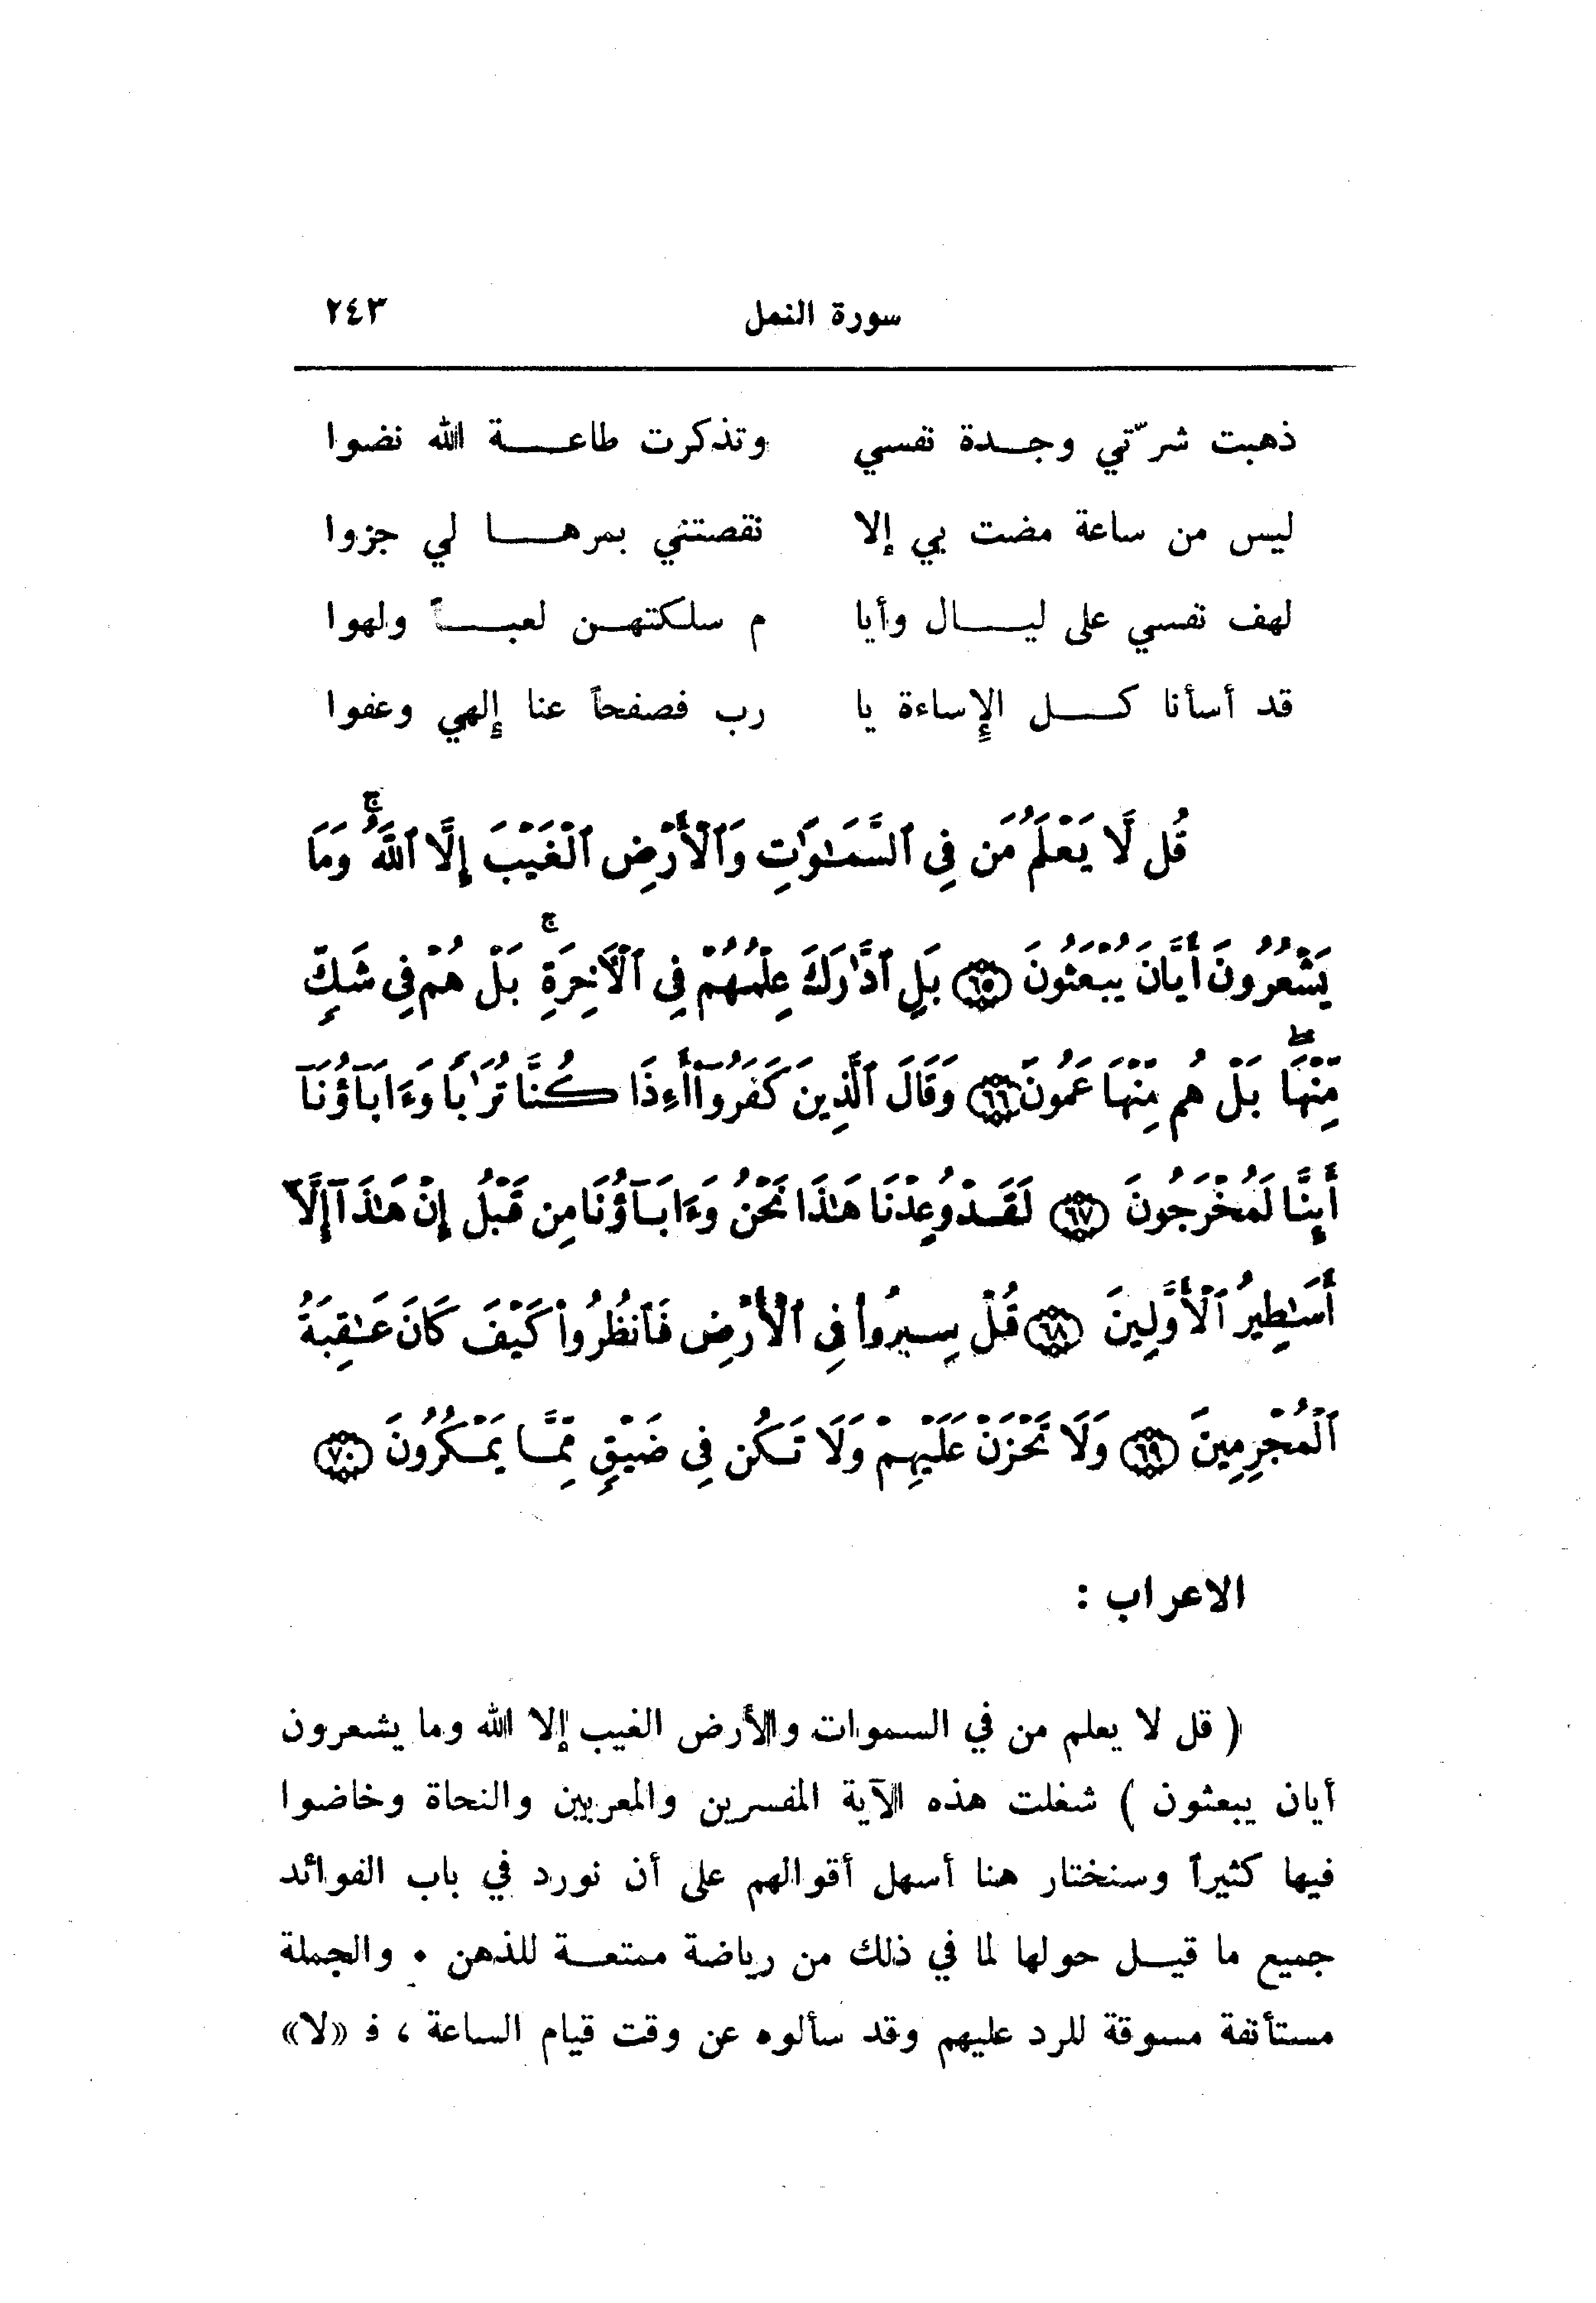 سورة النمل ٢٤٣
ذهبت شرّتي وجدة نفسي وتذكرت طاعة الله نضوا
ليس من ساعة مضت بي إلا نقصتني بمرها لي جزوا
لهف نفسي على ليال وأيا م سلكتهن لعباً ولهوا
قد أسأنا كل الإساءة يا رب فصفحاً عنا إلهي وعفوا
قُل لَّا يَعْلَمُ مَن فِى ٱلسَّمَٰوَٰتِ وَٱلْأَرْضِ ٱلْغَيْبَ إِلَّا ٱللَّهُ ۚ وَمَا
يَشْعُرُونَ أَيَّانَ يُبْعَثُونَ ٦٥ بَلِ ٱدَّٰرَكَ عِلْمُهُمْ فِى ٱلْأَخِرَةِ ۚ بَلْ هُمْ فِى شَكٍّ
مِّنْهَا ۖ بَلْ هُم مِّنْهَا عَمُونَ ٦٦ وَقَالَ ٱلَّذِينَ كَفَرُوٓا۟ أَءِذَا كُنَّا تُرَٰبًا وَءَابَآؤُنَآ
أَئِنَّا لَمُخْرَجُونَ ٦٧ لَقَدْ وُعِدْنَا هَٰذَا نَحْنُ وَءَابَآؤُنَا مِن قَبْلُ إِنْ هَٰذَآ إِلَّآ
أَسَٰطِيرُ ٱلْأَوَّلِينَ ٦٨ قُلْ سِيرُوا۟ فِى ٱلْأَرْضِ فَٱنظُرُوا۟ كَيْفَ كَانَ عَٰقِبَةُ
ٱلْمُجْرِمِينَ ٦٩ وَلَا تَحْزَنْ عَلَيْهِمْ وَلَا تَكُن فِى ضَيْقٍ مِّمَّا يَمْكُرُونَ ٧٠
الاعراب :
( قل لا يعلم من في السموات والأرض الغيب إلا الله وما يشعرون
أيان يبعثون ) شغلت هذه الآية المفسرين والمعربين والنحاة وخاضوا
فيها كثيراً وسنختار هنا أسهل أقوالهم على أن نورد في باب الفوائد
جميع ما قيل حولها لما في ذلك من رياضة ممتعة للذهن . والجملة
مستأنفة مسوقة للرد عليهم وقد سألوه عن وقت قيام الساعة ، ف «لا»